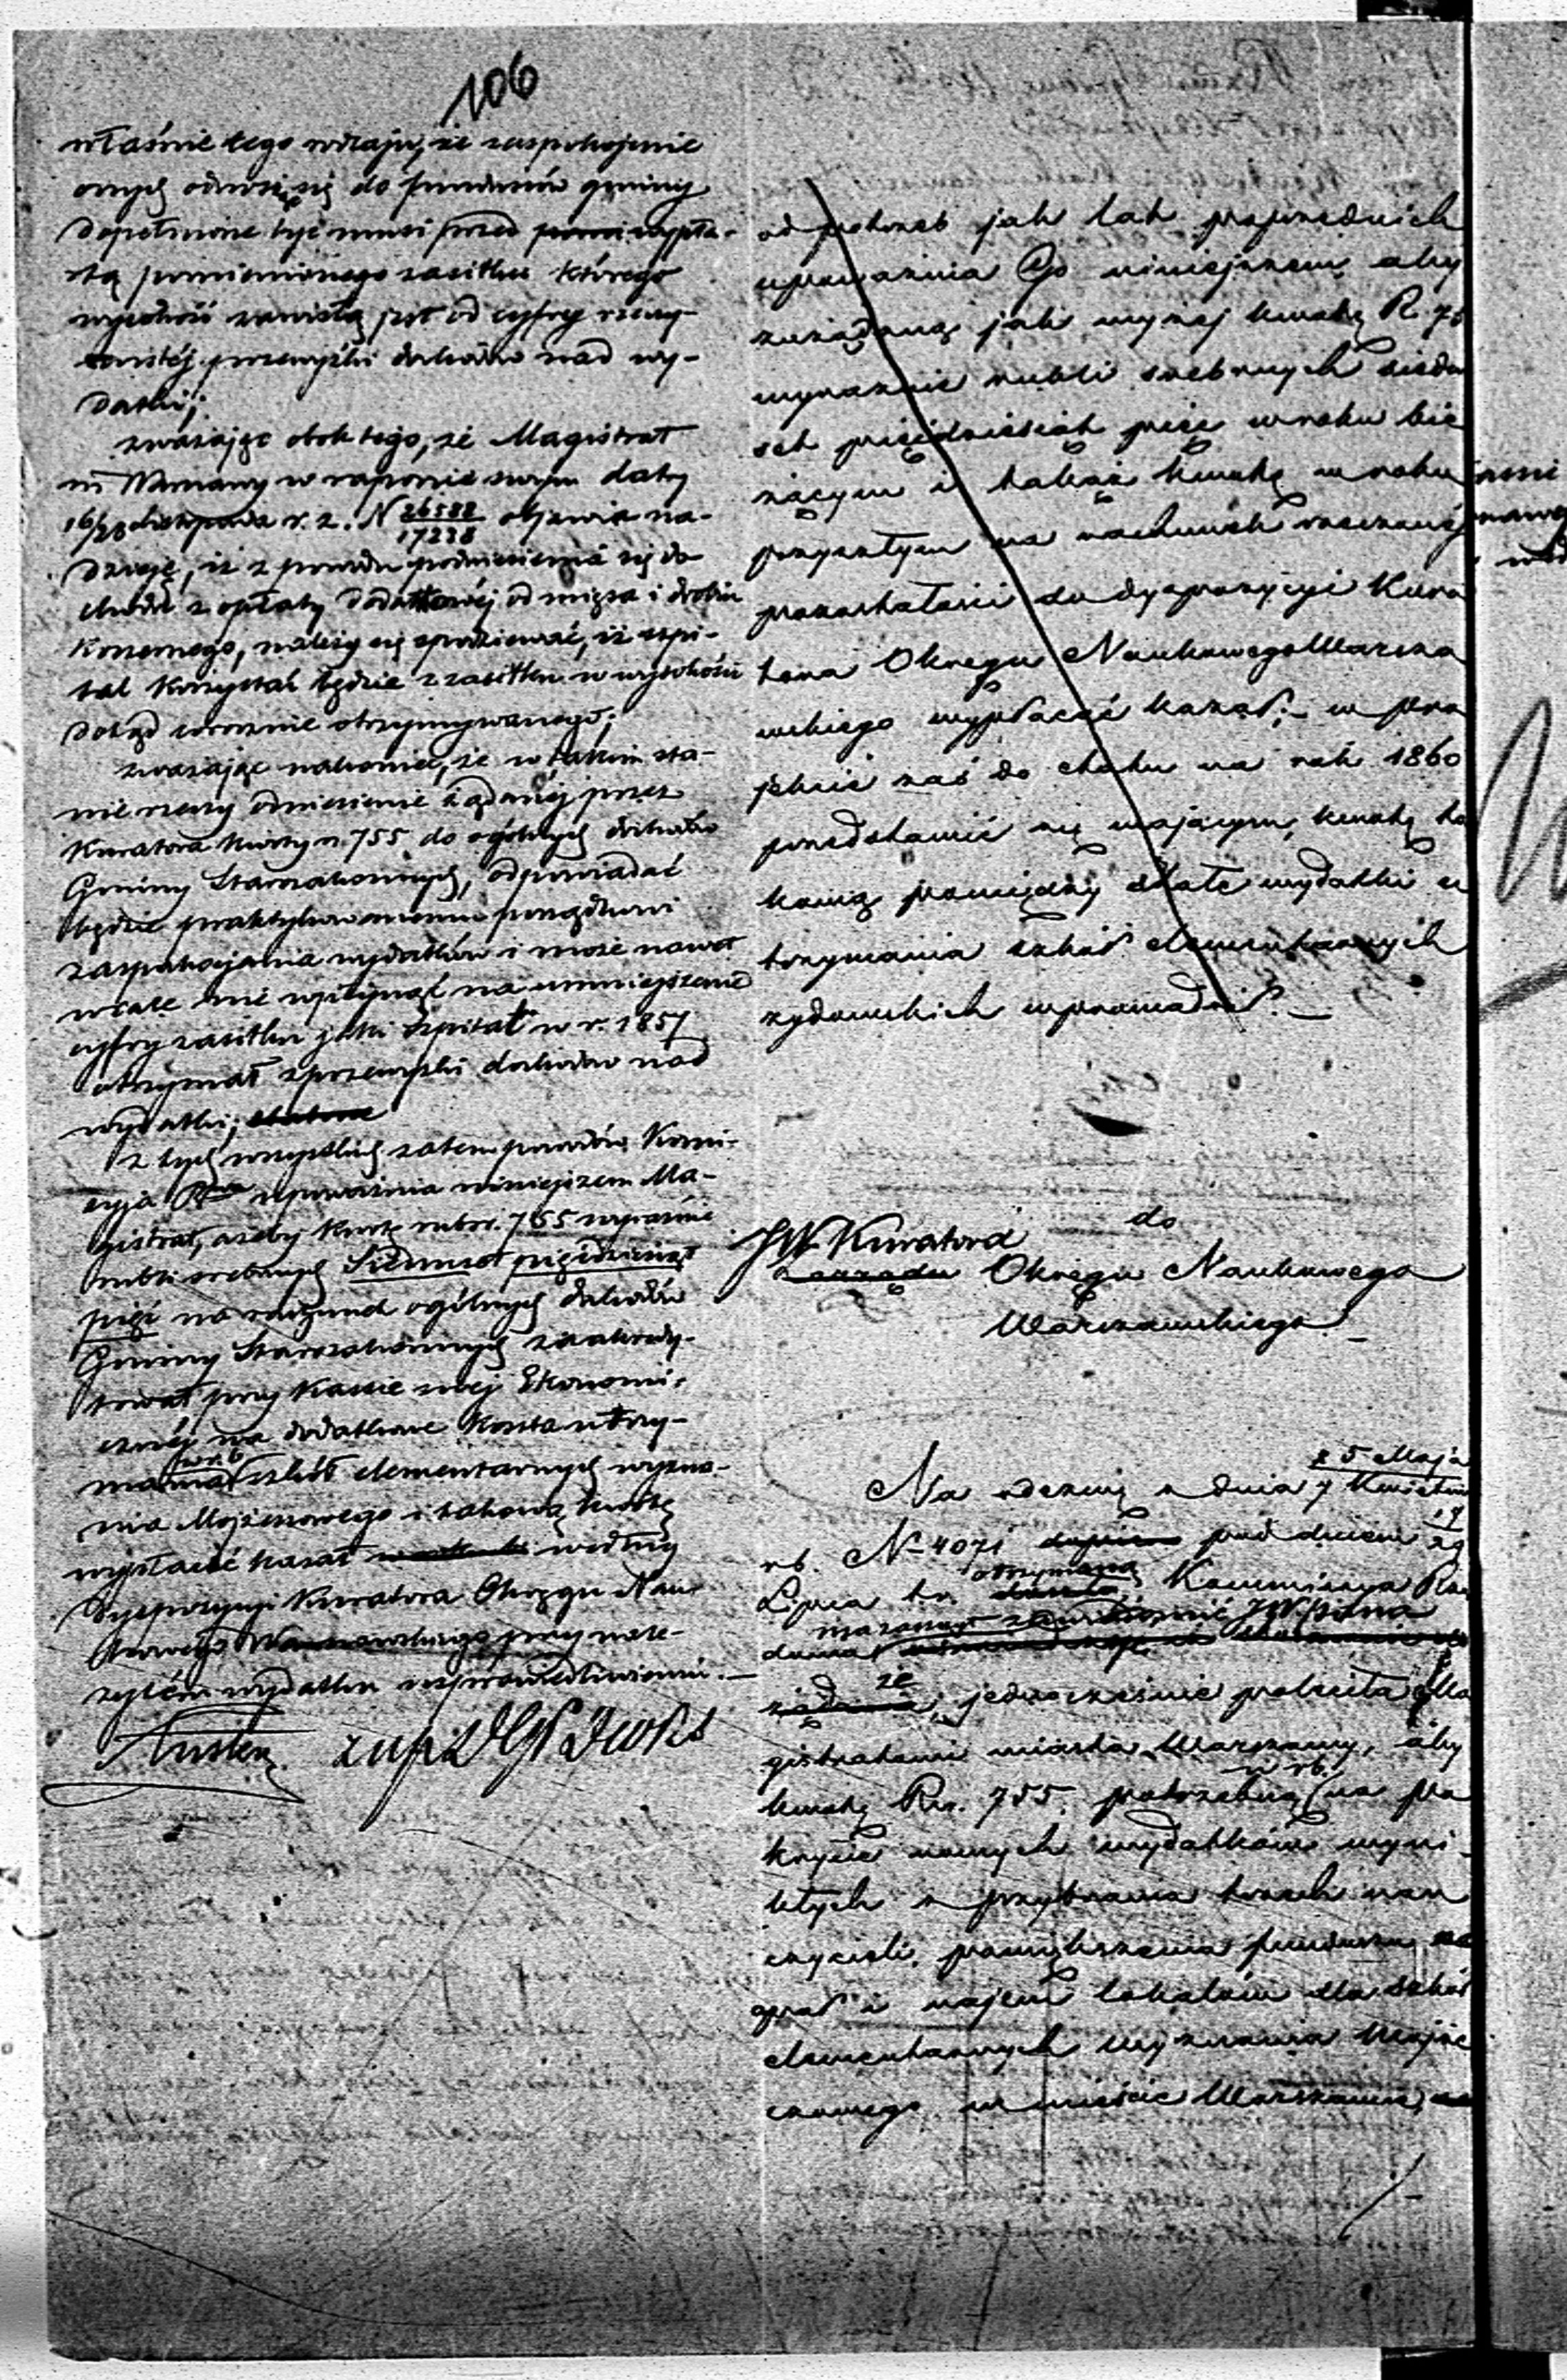 106
właśnie tego rodzaju, że zaspokojenie
onych odnosi się do funduszów gminy
dopełnione być musi przed wypła-
tą pomienionego zasiłku którego
wysokość zawisła jest od cyfry rzeczy-
wistéj przewyżki dochodów nad wy-
datki;
zważając obok tego, że Magistrat
m Warszawy w raporcie swym daty
16/28 Listopada r. z. N 26588/17238 objawia na-
dzieję, iż z powodu podniesienia się do-
chodu z opłaty dodatkowéj od mięsa i drobiu
koszernego, należy się spodziewać, iż szpi-
tal korzystać będzie z zasiłku w wysokości
dotąd corocznie otrzymywanego;
zważając nakoniec, że w takim sta-
nie rzeczy odniesienie żądanéj przez
Kuratora kwoty rs. 755 do ogólnych dochodów
Gminy Starozakonnych, odpowiadać
będzie praktykowanemu porządkowi
zaspokojenia wydatków i może nawet
wcale nie wpłynąć na umniejszenie
cyfry zasiłku jaki Szpital w r. 1857
otrzymał z przewyżki dochodów nad
wydatki;
z tych wszystkich zatem powodów Komi-
syja upoważnia niniejszem Ma-
gistrat, ażeby kwotę rubsr. 755 wyraźnie
rubli srebrnych Siedmset pięćdziesiąt
pięć na rachunek ogólnych dochodów
Gminy Starozakonnych zaakredy-
tował przy Kassie swéj Ekonomi-
cznéj na dodatkowe koszta utrzy-
mania w r. b. szkół elementarnych wyzna-
nia Mojżeszowego i takową kwotę
wypłacić kazał według
dyspozycyi Kuratora Okręgu Nau-
kowego Warszawskiego przy nale-
żytém wydatku usprawiedliwieniu.
od potrzeb jak lat poprzednich
upoważnia Go niniejszem aby
żądaną jak wyżej kwotę R. 75
wyraźnie rubli srebrnych siedm
set pięćdziesiąt pięć w roku bie
żącym i takąż kwotę w roku
przyszłym na rachunek
pozostałości do dyspozycyi Kura
tora Okręgu Naukowego Warsza
wskiego wypłacać kazał; w pro
jekcie zaś do etatu na rok 1860
przedstawić się mającym, kwotę ta
kową pomiędzy stałe wydatki u
trzymania szkół elementarnych
żydowskich wprowadził.
do
JW Kuratora
Zarządu Okręgu Naukowego
Warszawskiego
Na odezwę z dnia 25 Maja / 7 Kwietnia
rb. N 4071 pod dniem 17/29
Lipca t.r. otrzymaną Kommissya Rzą
dowa ma zaszczyt zawiadomić JW. Pana
że jednocześnie poleciła Ma
gistratowi miasta Warszawy, aby
kwotę Rsr. 755, potrzebną w rb. na po
krycie nowych wydatków wyni
kłych z przybrania trzech nau
czycieli, powiększenia funduszu na
opał i najem lokalów dla szkół
elementarnych wyznania Mojże
szowego w mieście Warszawie,